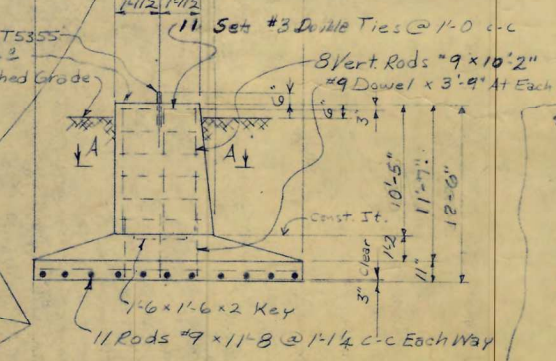 1'-1 1/2 1'-1 1/2
11 Sets #3 Double Ties @ 1'-0 c-c
T5355
8 Vert. Rods #9 x 10'-2"
#9 Dowel x 3'-9" At Each
hed Grade
6"
6"
3"
A A
10'-5"
11'-7"
12'-6"
Const. Jt.
1'-2
11"
3" Clear
1'-6 x 1'-6 x 2 Key
11 Rods #9 x 11'-8 @ 1'-1 1/4 c-c Each Way